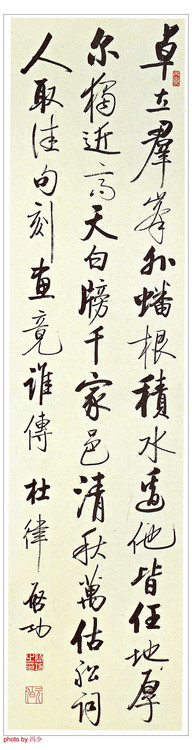 卓立羣峯外蟠根積水邊他皆任地厚
尔獨近高天白牓千家邑清秋萬估舩詞
人取佳句刻畫竟誰傳 杜律 啓功
photo by 冯少